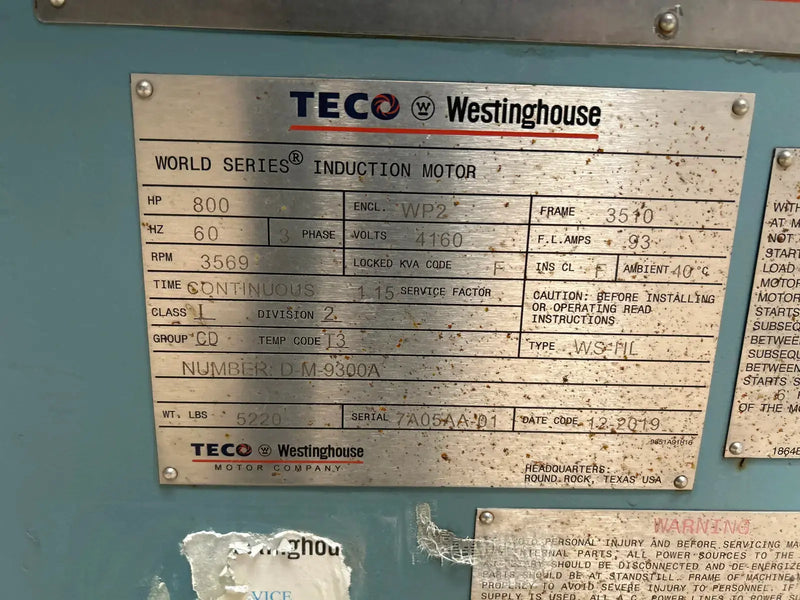 TECO W Westinghouse
WORLD SERIES® INDUCTION MOTOR
HP 800 ENCL. WP2 FRAME 3510
HZ 60 3 PHASE VOLTS 4160 F.L.AMPS 93
RPM 3569 LOCKED KVA CODE F INS CL F AMBIENT 40°C
TIME CONTINUOUS 1.15 SERVICE FACTOR CAUTION: BEFORE INSTALLING
OR OPERATING READ
INSTRUCTIONS
CLASS I DIVISION 2
GROUP CD TEMP CODE T3 TYPE WS-HL
NUMBER: D-M-9300A
WT. LBS 5220 SERIAL 7A05AA-01 DATE CODE 12-2019
TECO W Westinghouse
MOTOR COMPANY
HEADQUARTERS:
ROUND ROCK, TEXAS USA
WITH
AT M
NOT
START
LOAD
MOTOR
MOTOR
STARTS
SUBSEQ
BETWEE
SUBSEQU
BETWEEN
STARTS S
OF THE MO
1864
nghou
VICE
WARNING
PERSONAL INJURY AND BEFORE SERVICING MA
PARTS, ALL POWER SOURCES TO THE
SHOULD BE DISCONNECTED AND DE-ENERGIZE
PARTS SHOULD BE AT STANDSTILL. FRAME OF MACHINE
PROPERLY TO AVOID SEVERE INJURY TO PERSONNEL. IF
SUPPLY IS USED, ALL A.C. POWER LINES TO POWER SU